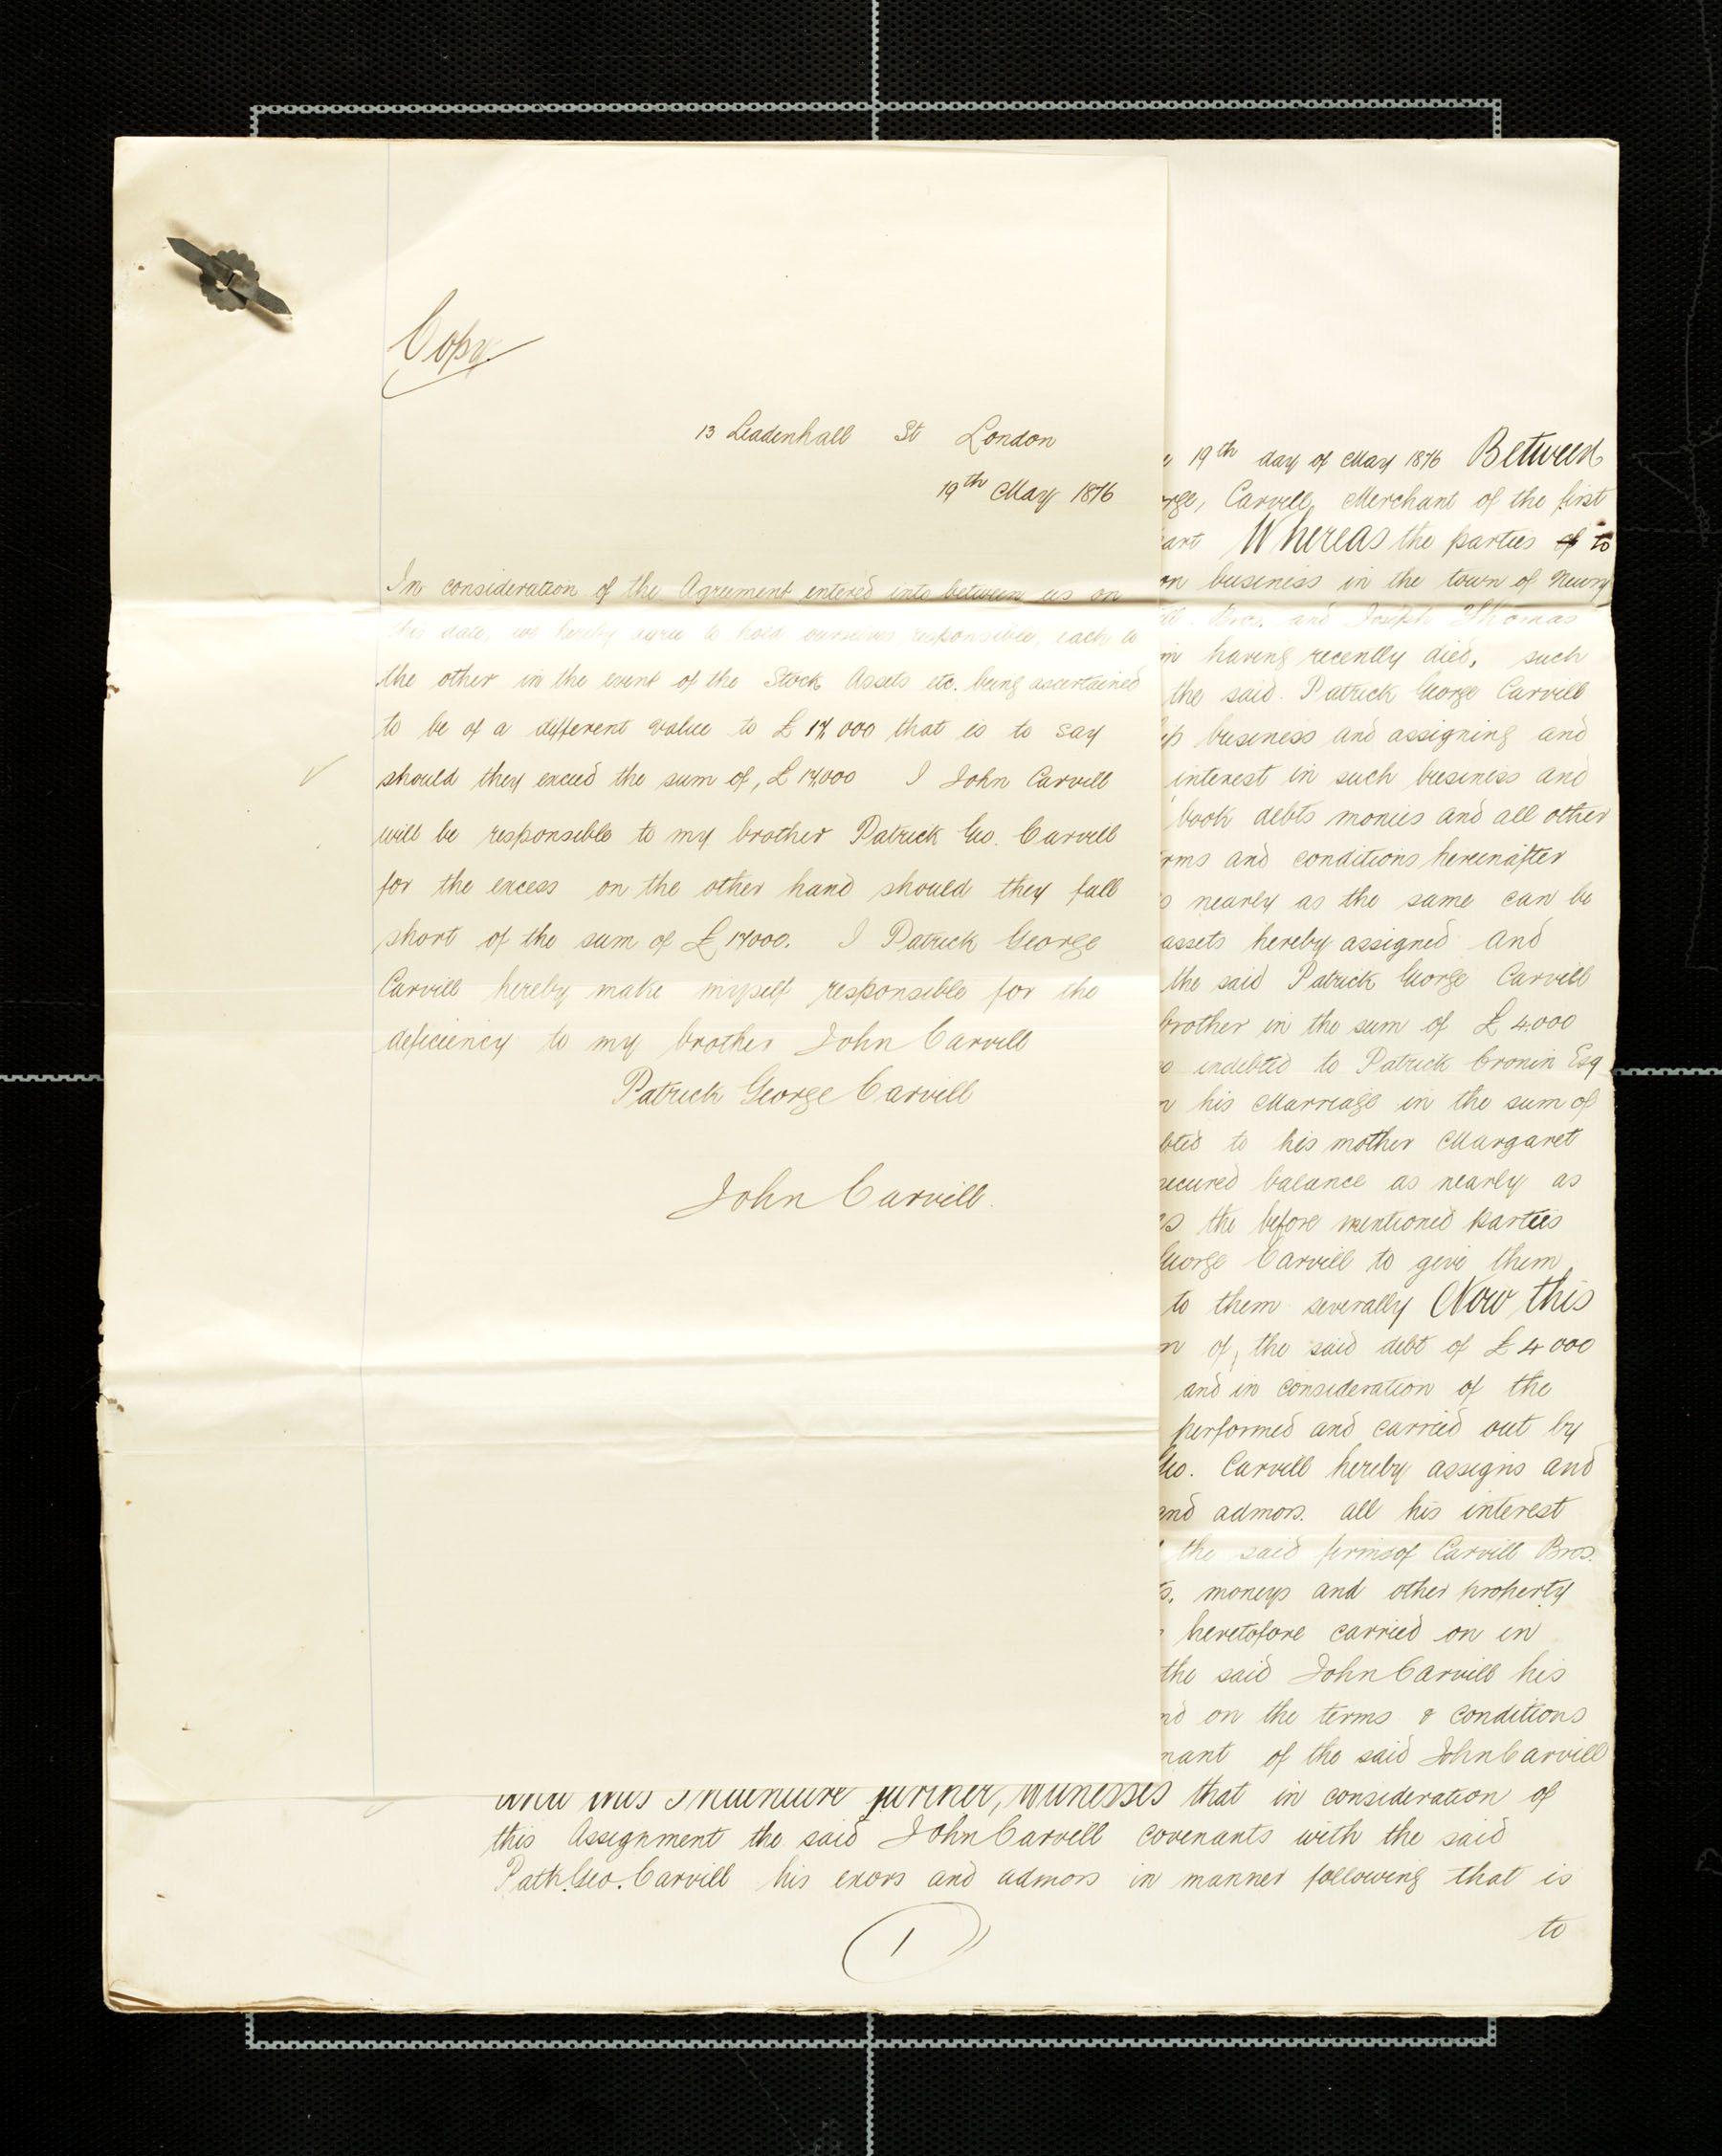 Copy.
13 Leadenhall St London
19th May 1876
In consideration of the Agreement entered into between us on
this date, we hereby agree to hold ourselves responsible, each to
the other in the event of the Stock Assets etc. being ascertained
to be of a different value to £17,000 that is to say
should they exceed the sum of, £17,000 I John Carvill
will be responsible to my brother Patrick Geo. Carvill
for the excess on the other hand should they fall
short of the sum of £17000. I Patrick George
Carvill hereby make myself responsible for the
deficiency to my brother John Carvill
Patrick George Carvill
John Carvill.
19th day of May 1876 Between
Carvill, Merchant of the first
Whereas the parties of to
on business in the town of Newry
Bros. and Joseph Thomas
having recently died, such
the said Patrick George Carvill
business and assigning and
interest in such business and
book debts monies and all other
and conditions hereinafter
nearly as the same can be
assets hereby assigned and
the said Patrick George Carvill
brother in the sum of £4.000
indebted to Patrick Cronin Esq
his Marriage in the sum of
to his mother Margaret
secured balance as nearly as
the before mentioned parties
George Carvill to give them
to them severally Now this
of, the said debt of £4000
and in consideration of the
performed and carried out by
Geo. Carvill hereby assigns and
and admors. all his interest
the said firms of Carvill Bros.
moneys and other property
heretofore carried on in
the said John Carvill his
on the terms & conditions
of the said John Carvill
And this Indenture further, Witnesses that in consideration of
this Assignment the said John Carvill covenants with the said
Patk. Geo. Carvill his exors and admors in manner following that is
to
1